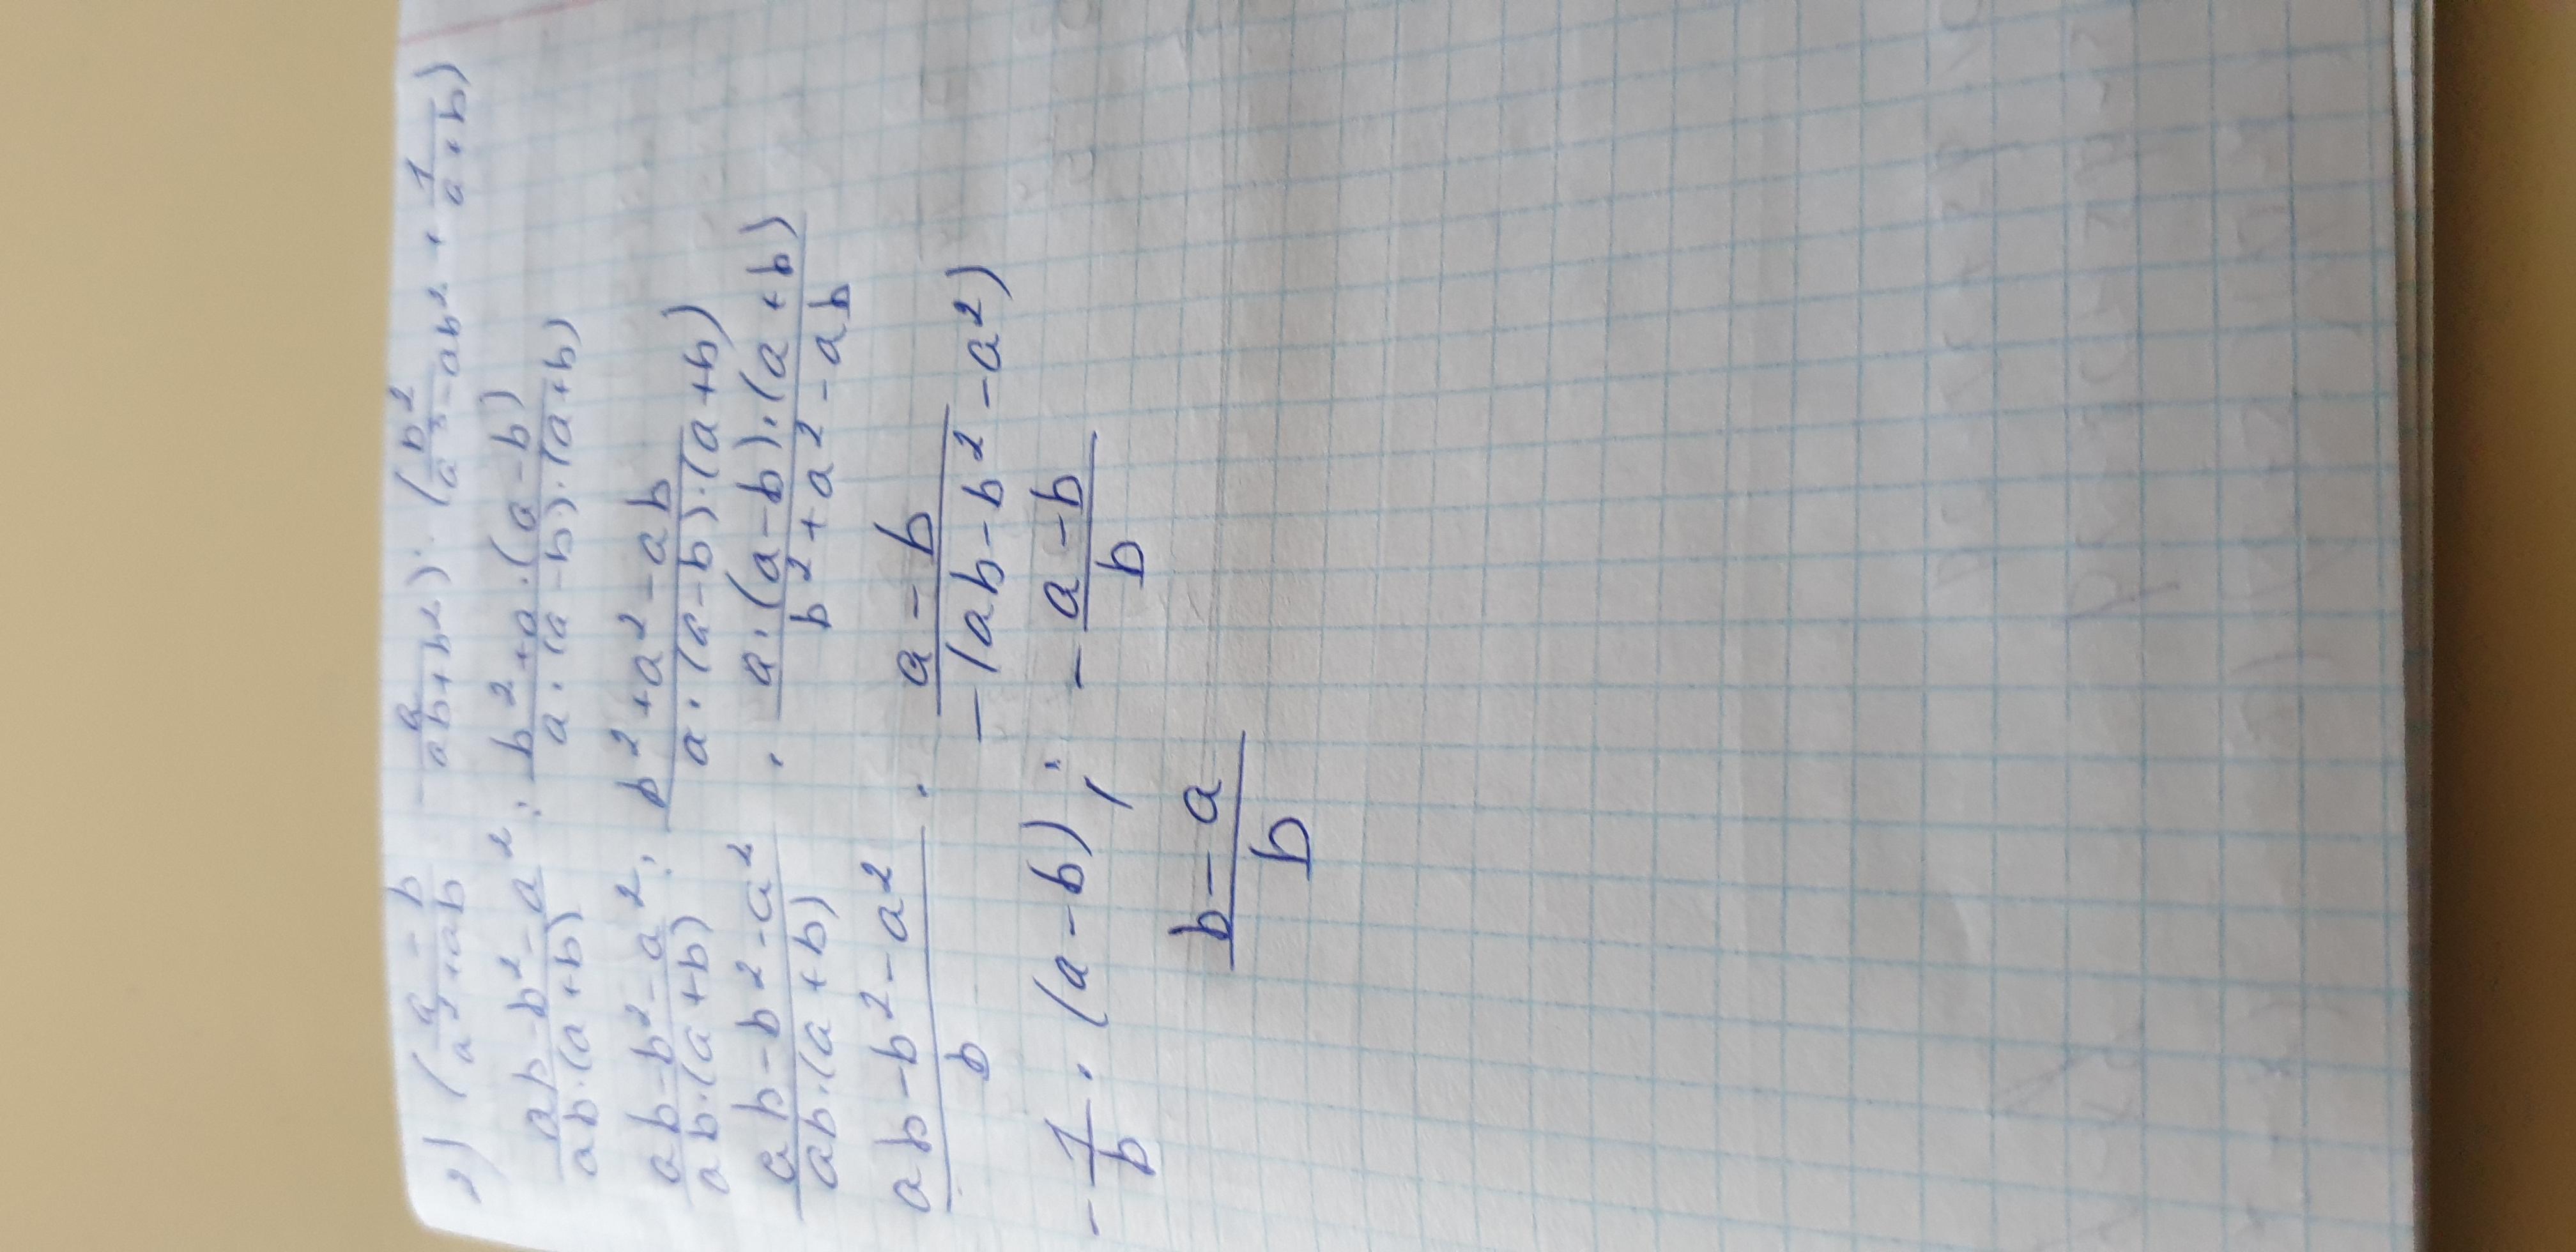 2) (a-b/a²+ab - a/ab+b²) : (b²/a³-ab² + 1/a+b)
ab-b²-a²/ab·(a+b) : b²+a·(a-b)/a·(a-b)·(a+b)
ab-b²-a²/ab·(a+b) : b²+a²-ab/a·(a-b)·(a+b)
ab-b²-a²/ab·(a+b) · a·(a-b)·(a+b)/b²+a²-ab
ab-b²-a²/b · a-b/-(ab-b²-a²)
-1/b·(a-b); -a-b/b
b-a/b